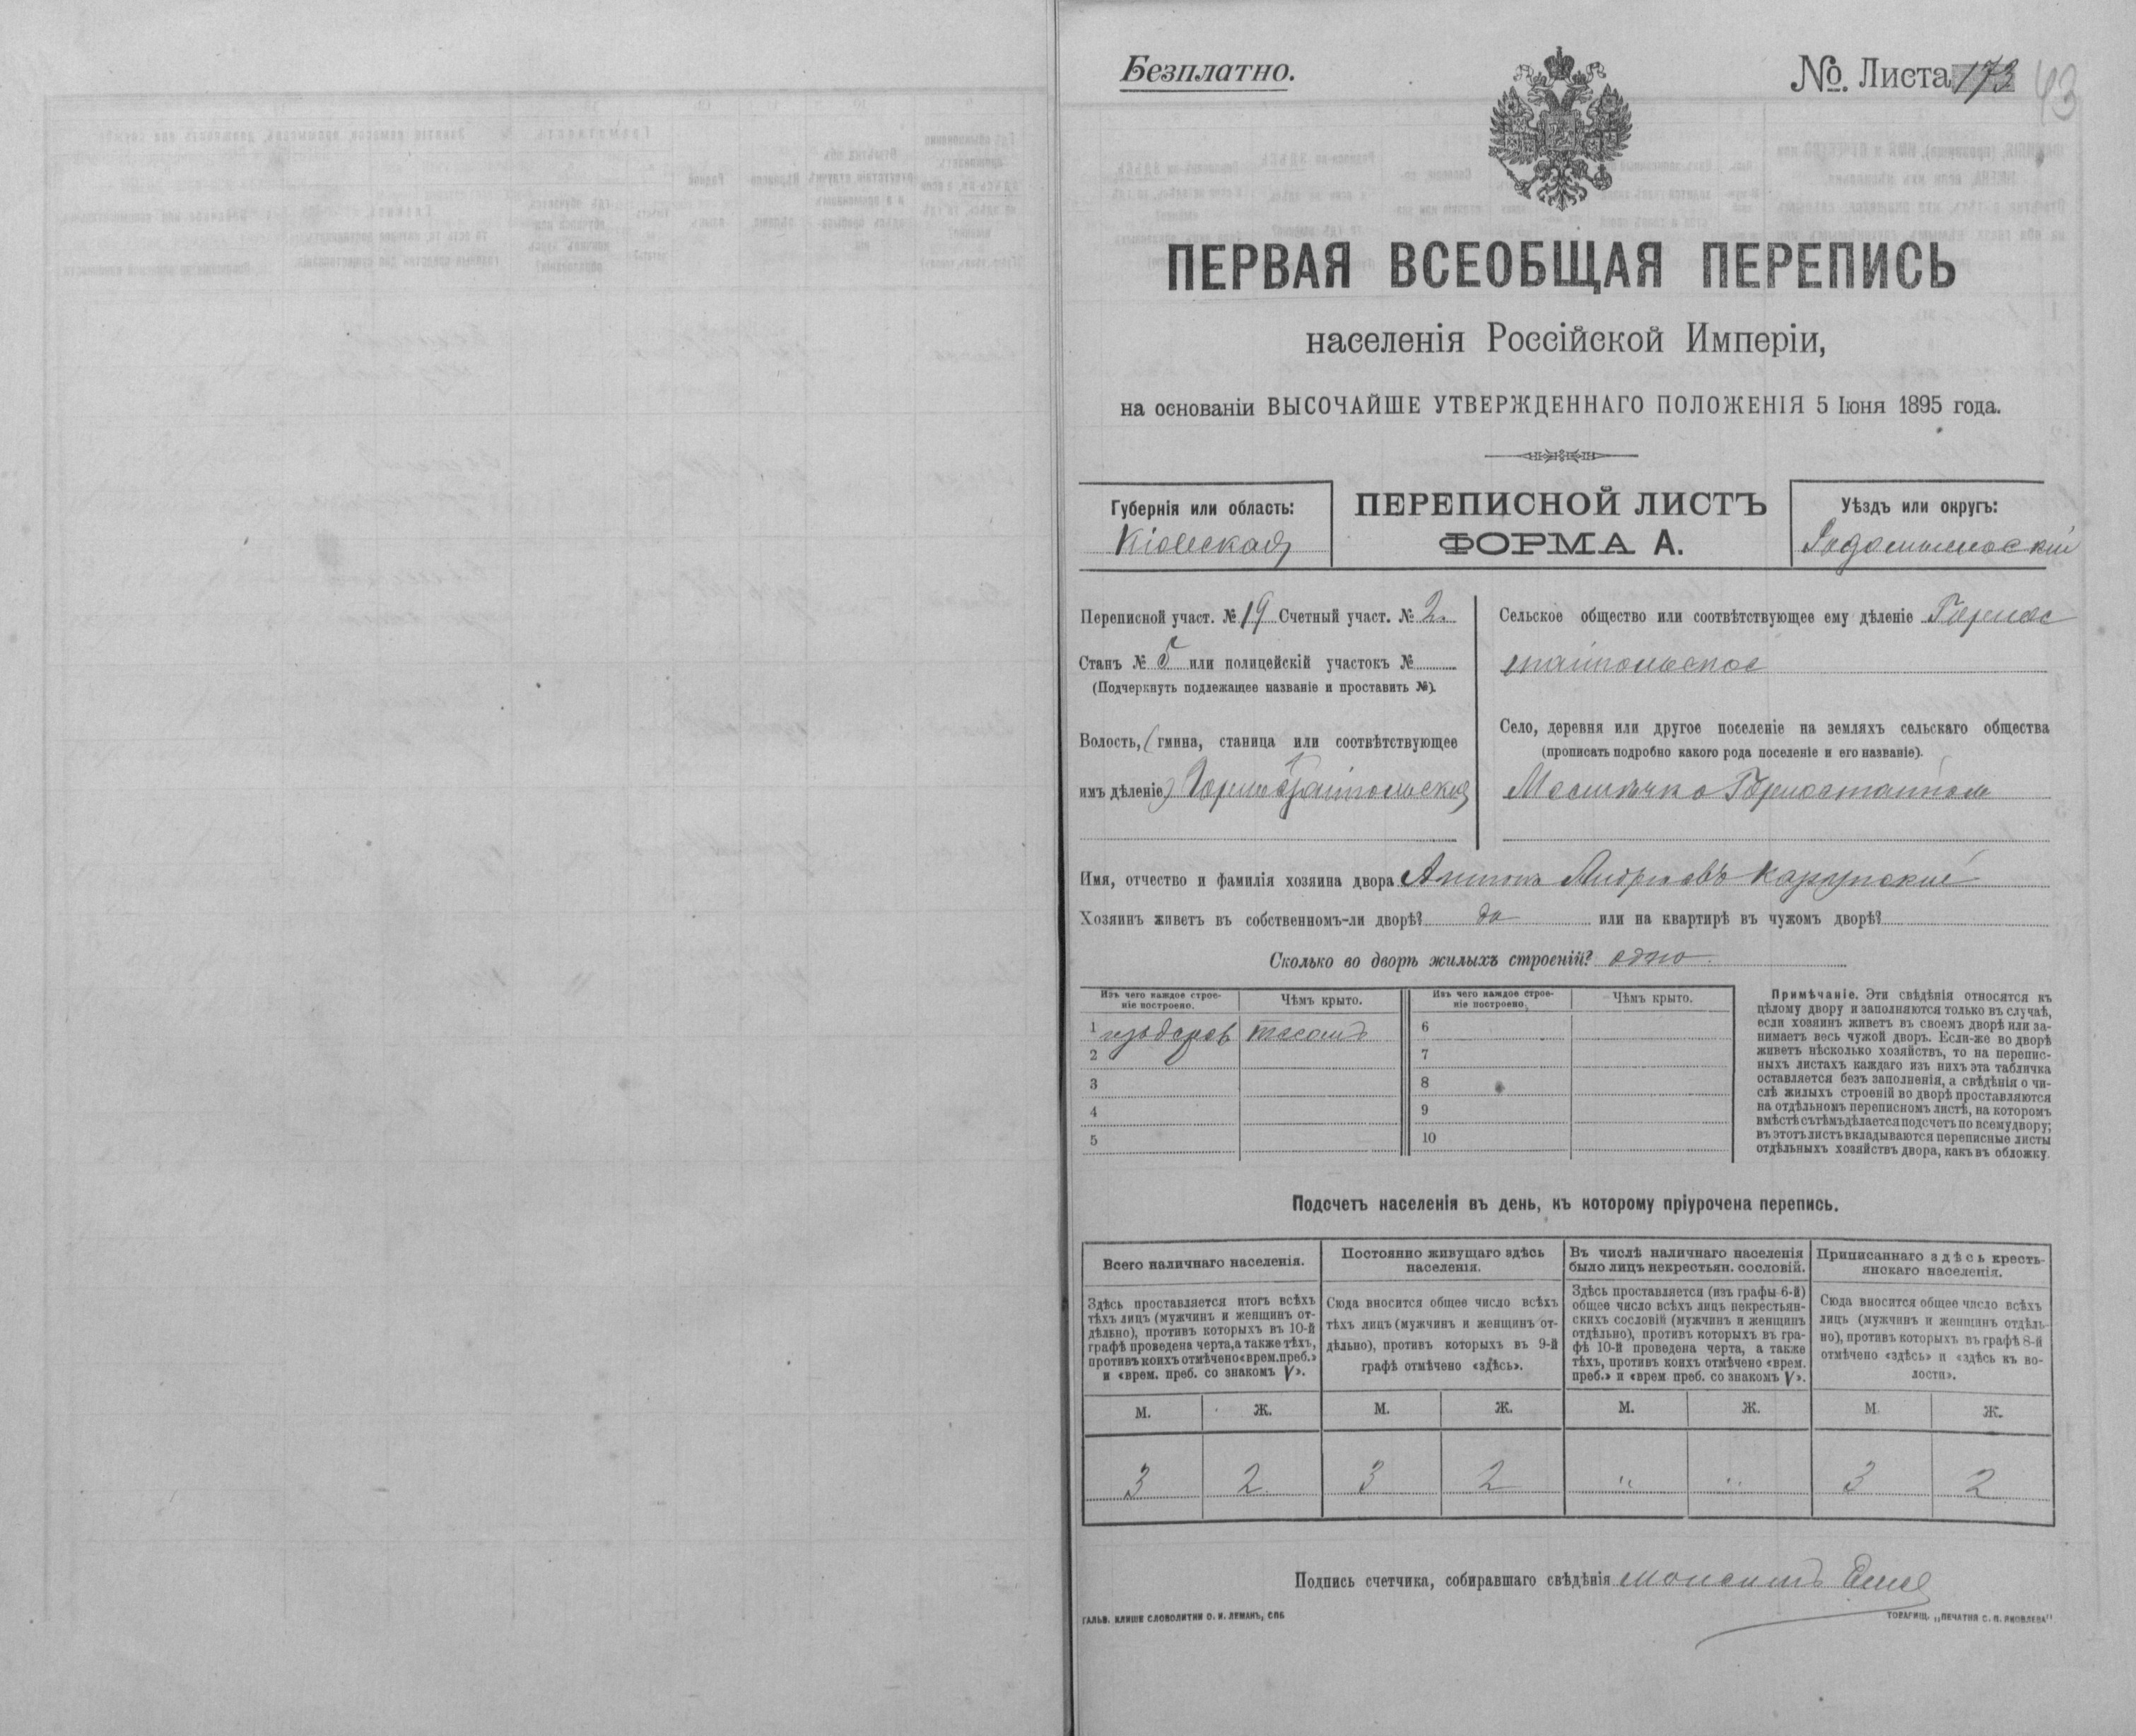 Безплатно.
№. Листа 173
43
ПЕРВАЯ ВСЕОБЩАЯ ПЕРЕПИСЬ
населенія Россійской Имперіи,
на основаніи ВЫСОЧАЙШЕ УТВЕРЖДЕННАГО ПОЛОЖЕНІЯ 5 Іюня 1895 года.
Губернія или область:
Кіевская
ПЕРЕПИСНОЙ ЛИСТЪ
ФОРМА А.
Уѣздъ или округъ:
Радомысльскій
Переписной участ. № 19 Счетный участ. № 2.
Станъ № 5 или полицейскій участокъ №
(Подчеркнуть подлежащее названіе и проставить №).
Волость, (гмина, станица или соотвѣтствующее
имъ дѣленіе) Горностайпольская
Сельское общество или соотвѣтствующее ему дѣленіе Горнос
тайпольское
Село, деревня или другое поселеніе на земляхъ сельскаго общества
(прописать подробно какого рода поселеніе и его названіе).
Мѣстечко Горностайполь
Имя, отчество и фамилія хозяина двора Антонъ Андреевъ
Хозяинъ живетъ въ собственномъ-ли дворѣ? да или на квартирѣ въ чужомъ дворѣ?
Сколько во дворѣ жилыхъ строеній? одно.
Изъ чего каждое строе-
ніе построено.
Чѣмъ крыто.
Изъ чего каждое строе-
ніе построено.
Чѣмъ крыто.
1 изъ дерев тесомъ
2
3
4
5
6
7
8
9
10
Примѣчаніе. Эти свѣдѣнія относятся къ
цѣлому двору и заполняются только въ случаѣ,
если хозяинъ живетъ въ своемъ дворѣ или за-
нимаетъ весь чужой дворъ. Если-же во дворѣ
живетъ нѣсколько хозяйствъ, то на перепис-
ныхъ листахъ каждаго изъ нихъ эта табличка
оставляется безъ заполненія, а свѣдѣнія о чи-
слѣ жилыхъ строеній во дворѣ проставляются
на отдѣльномъ переписномъ листѣ, на которомъ
вмѣстѣ съ тѣмъ дѣлается подсчетъ по всему двору;
въ этотъ листъ вкладываются переписные листы
отдѣльныхъ хозяйствъ двора, какъ въ обложку.
Подсчетъ населенія въ день, къ которому пріурочена перепись.
Всего наличнаго населенія.
Здѣсь проставляется итогъ всѣхъ
тѣхъ лицъ (мужчинъ и женщинъ от-
дѣльно), противъ которыхъ въ 10-й
графѣ проведена черта, а также тѣхъ,
противъ коихъ отмѣчено «врем. преб.»
и «врем. преб. со знакомъ V».
Постоянно живущаго здѣсь
населенія.
Сюда вносится общее число всѣхъ
тѣхъ лицъ (мужчинъ и женщинъ от-
дѣльно), противъ которыхъ въ 9-й
графѣ отмѣчено «здѣсь».
Въ числѣ наличнаго населенія
было лицъ некрестьян. сословій.
Здѣсь проставляется (изъ графы 6-й)
общее число всѣхъ лицъ некрестьян-
скихъ сословій (мужчинъ и женщинъ
отдѣльно), противъ которыхъ въ гра-
фѣ 10-й проведена черта, а также
тѣхъ, противъ коихъ отмѣчено «врем.
преб.» и «врем. преб. со знакомъ V».
Приписаннаго здѣсь кресть-
янскаго населенія.
Сюда вносится общее число всѣхъ
лицъ (мужчинъ и женщинъ отдѣль-
но), противъ которыхъ въ графѣ 8-й
отмѣчено «здѣсь» и «здѣсь къ во-
лости».
М. Ж. М. Ж. М. Ж. М. Ж.
3 2 3 2 " " 3 2
Подпись счетчика, собиравшаго свѣдѣнія
ГАЛЬВ. КЛИШЕ СЛОВОЛИТНИ О. И. ЛЕМАНЪ, СПБ
ТОВАРИЩ. „ПЕЧАТНЯ С. П. ЯКОВЛЕВА"